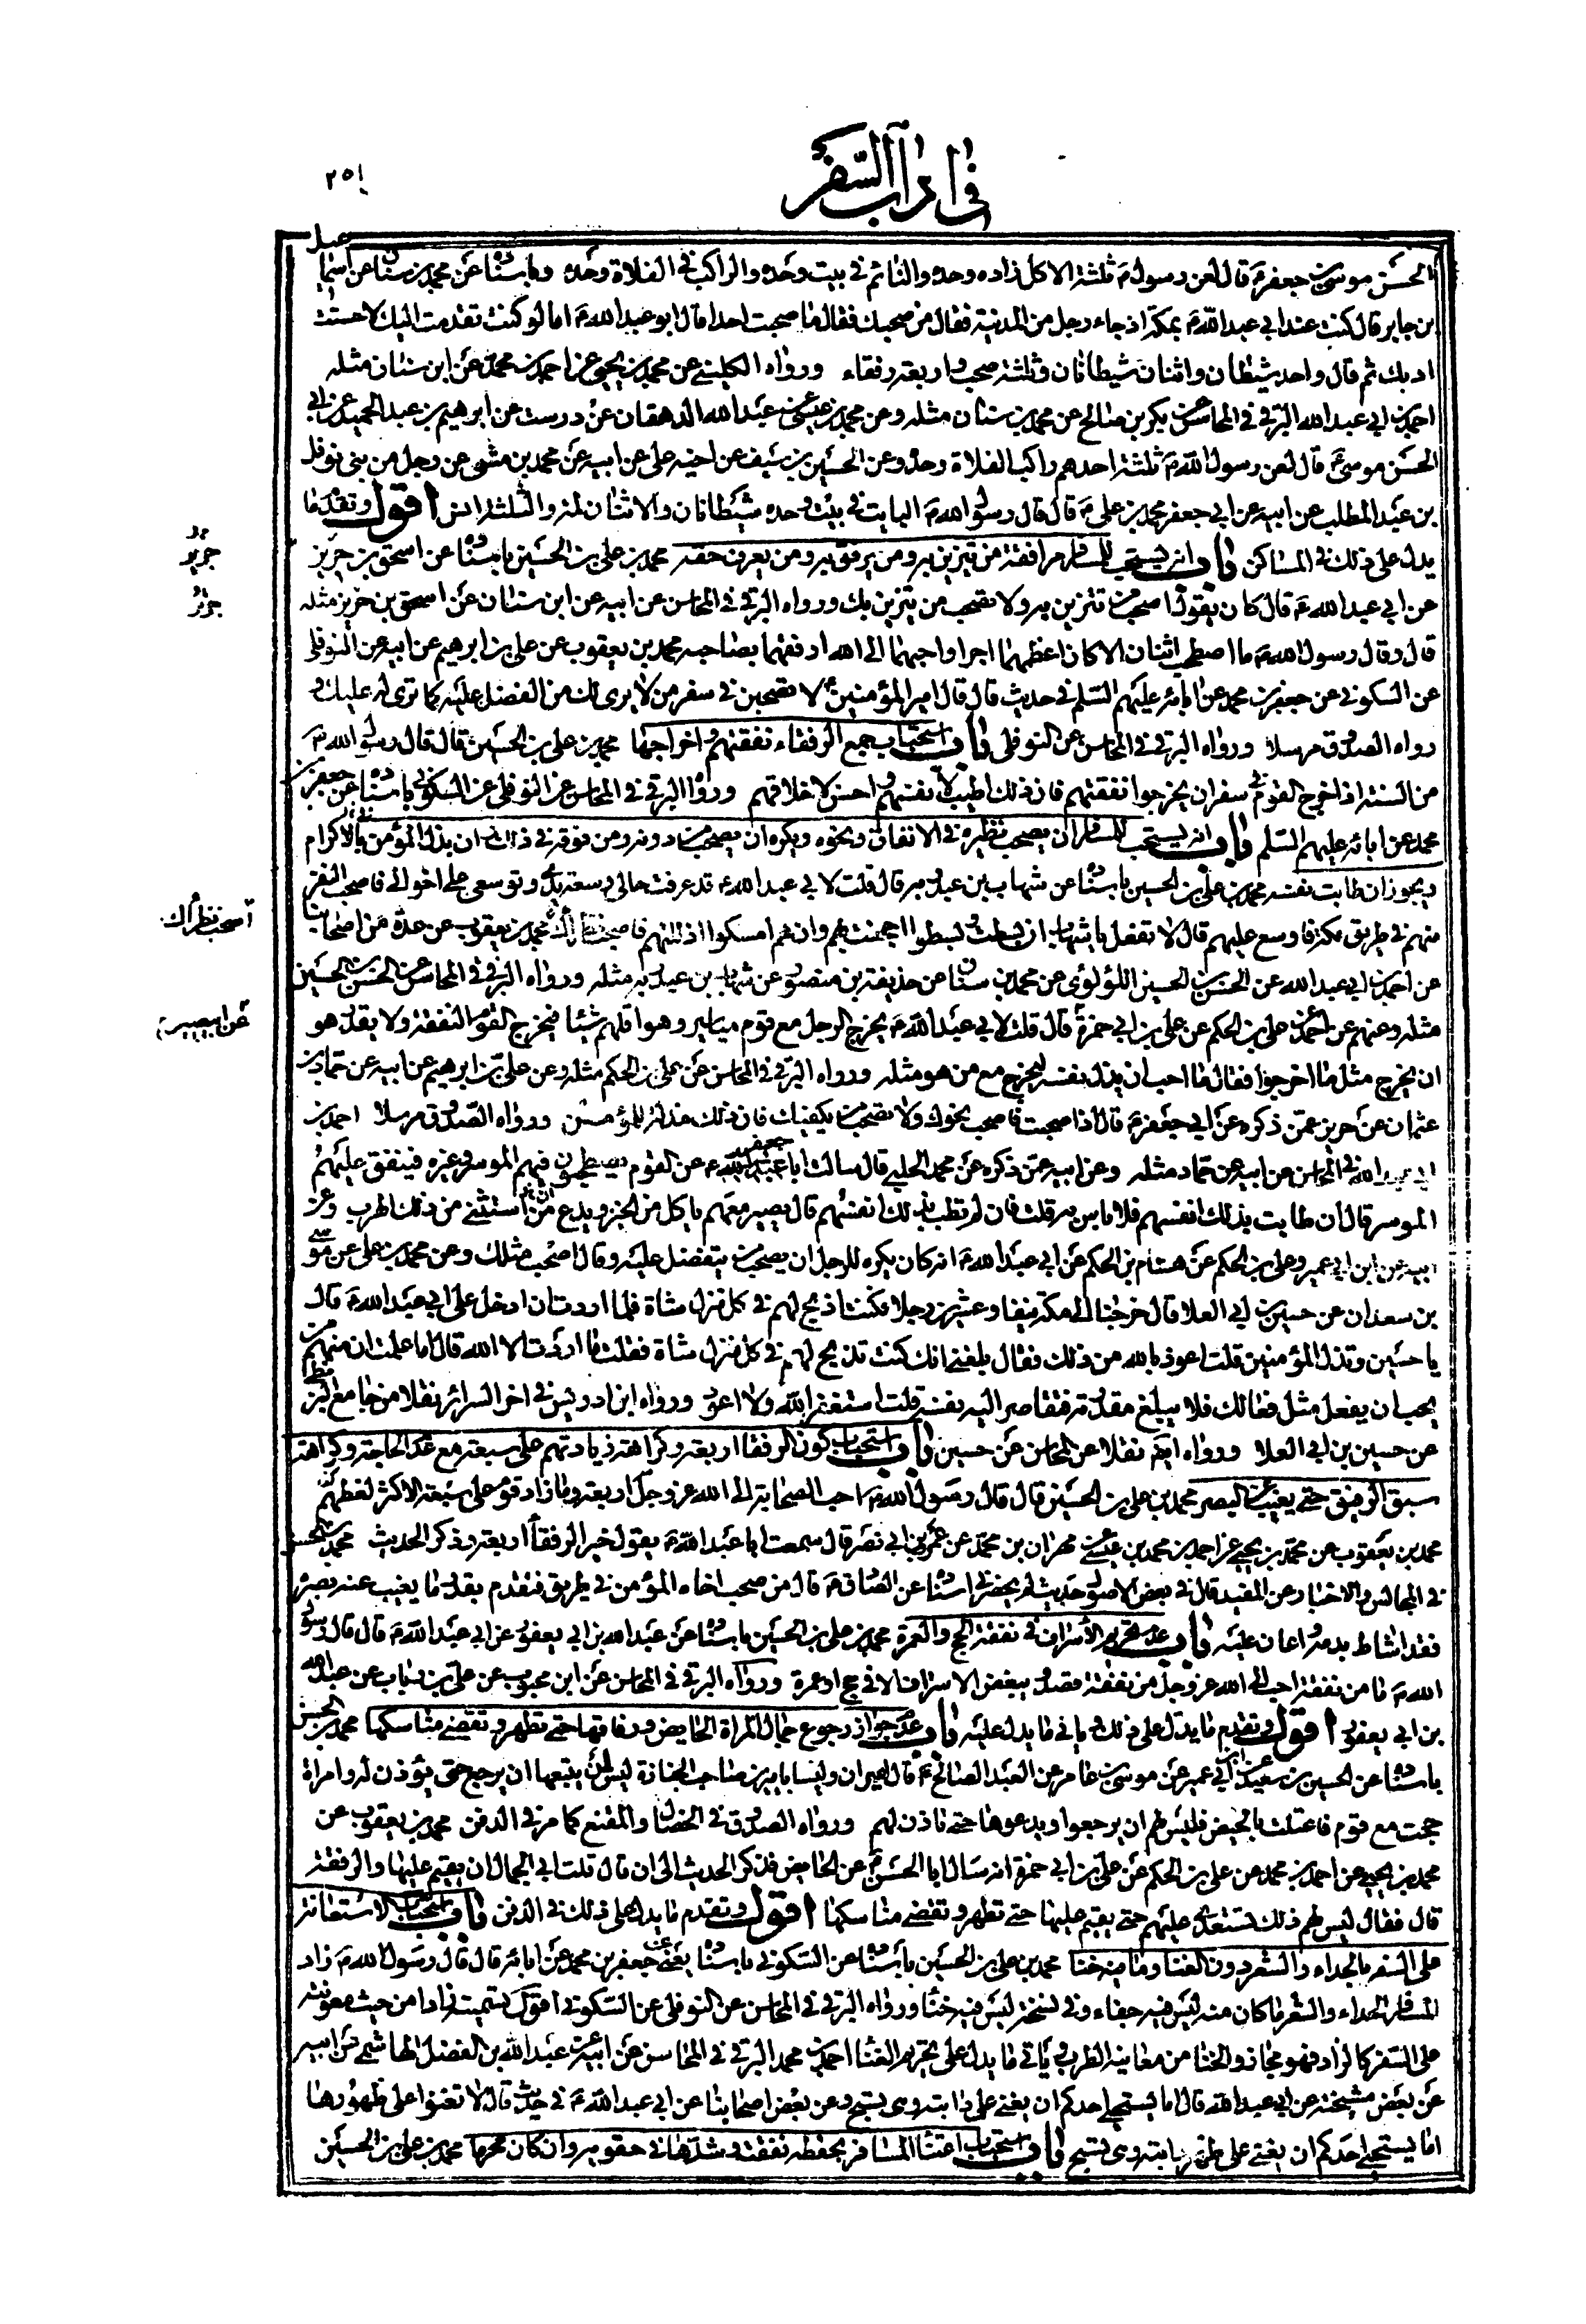 في آداب السفر
٢٥١
الحسن موسى بن جعفر ع قال لعن رسول الله ص ثلثة الاكل زاده وحده والنائم في بيت وحده والراكب في الفلاة وحده وباسناده عن محمد بن سنان عن اسماعيل
بن جابر قال كنت عند ابي عبد الله ع بمكة اذ جاء رجل من المدينة فقال من صحبك فقال ما صحبت احدا فقال ابو عبد الله ع اما لو كنت تقدمت اليك لاحسنت
ادبك ثم قال واحد شيطان واثنان شيطانان وثلثة صحب واربعة رفقاء ورواه الكليني عن محمد بن يحيى عن احمد بن محمد عن ابن سنان مثله
احمد بن ابي عبد الله البرقي في المحاسن عن بكر بن صالح عن محمد بن سنان مثله وعن محمد بن عيسى عن عبد الله الدهقان عن درست عن ابرهيم بن عبد الحميد عن ابي
الحسن موسى ع قال لعن رسول الله ص ثلثة احدهم راكب الفلاة وحده وعن الحسين بن سيف عن اخيه علي عن ابيه عن محمد بن مثنى عن رجل من بني نوفل
بن عبد المطلب عن ابيه عن ابي جعفر محمد بن علي ع قال قال رسول الله ص البايت في بيت وحده شيطان والاثنان لمة والثلثة انس اقول وتقدم ما
يدل على ذلك في المساكن باب انه يستحب للمسافر مرافقة من يتزين به ومن يرفق به ومن يعرف حقه محمد بن علي بن الحسين باسناده عن اسحق بن جرير
جرير
عن ابي عبد الله ع قال كان يقول اصحب من تتزين به ولا تصحب من يتزين بك ورواه البرقي في المحاسن عن ابيه عن ابن سنان عن اسحق بن جرير مثله
قال وقال رسول الله ص ما اصطحب اثنان الا كان اعظمهما اجرا واحبهما الى الله ارفقهما بصاحبه محمد بن يعقوب عن علي بن ابرهيم عن ابيه عن النوفلي
عن السكوني عن جعفر بن محمد عن ابائه عليهم السلم في حديث قال قال امير المؤمنين ع لا تصحبن في سفر من لا يرى لك من الفضل عليه كما ترى له عليك و
رواه الصدوق مرسلا ورواه البرقي في المحاسن عن النوفلي باب استحباب جمع الرفقاء نفقتهم واخراجها محمد بن علي بن الحسين قال قال رسول الله ص
من السنة اذا خرج القوم في سفر ان يخرجوا نفقتهم فان ذلك اطيب لانفسهم واحسن لاخلاقهم ورواه البرقي في المحاسن عن النوفلي عن السكوني باسناده عن جعفر بن
محمد عن ابائه عليهم السلم باب انه يستحب للمسافر ان يصحب نظيره في الانفاق ونحوه ويكره ان يصحب من دونه ومن فوقه في ذلك وان يذل المؤمن بالاكرام
ويجوز ان طابت نفسه محمد بن علي بن الحسين باسناده عن شهاب بن عبد ربه قال قلت لابي عبد الله ع قد عرفت حالي وسعة يدي وتوسعي على اخواني فاصحب النفر
منهم في طريق مكة فاوسع عليهم قال لا تفعل يا شهاب ان بسطت وبسطوا اجحفت بهم وان هم امسكوا اذللتهم فاصحب نظراءك محمد بن يعقوب عن عدة من اصحابنا
اصحب نظراءك
عن احمد بن ابي عبد الله عن الحسن بن الحسين اللؤلؤي عن محمد بن سنان عن حذيفة بن منصور عن شهاب بن عبد ربه مثله ورواه البرقي في المحاسن عن الحسن بن الحسين
مثله وعنهم عن احمد عن علي بن الحكم عن علي بن ابي حمزة قال قلت لابي عبد الله ع يخرج الرجل مع قوم مياسير وهو اقلهم شيئا فيخرج القوم النفقة ولا يقدر هو
عن ابي بصير
ان يخرج مثل ما اخرجوا فقال ما احب ان يذل نفسه ليخرج مع من هو مثله ورواه البرقي في المحاسن عن علي بن الحكم مثله وعن علي بن ابرهيم عن ابيه عن حماد بن
عثمان عن حريز عمن ذكره عن ابي جعفر ع قال اذا صحبت فاصحب نحوك ولا تصحب من يكفيك فان ذلك مذلة للمؤمن ورواه الصدوق مرسلا احمد بن
ابي عبد الله في المحاسن عن ابيه عن حماد مثله وعن ابيه عمن ذكره عن محمد الحلبي قال سالت ابا عبد الله ع عن القوم يصطحبون فيهم الموسر وغيره فينفق عليهم
الموسر قال ان طابت بذلك انفسهم فلا باس به قلت فان لم تطب بذلك انفسهم قال يصير معهم ياكل من الخبز ويدع ان يستثني من ذلك الهرب وعن
ابيه عن ابن ابي عمير وعلي بن الحكم عن هشام بن الحكم عن ابي عبد الله ع انه كان يكره للرجل ان يصحب من يتفضل عليه وقال اصحب مثلك وعن محمد بن علي عن موسى
بن سعدان عن حسين بن ابي العلا قال خرجنا الى مكة نيفا وعشرين رجلا فكنت اذبح لهم في كل منزل شاة فلما اردت ان ادخل على ابي عبد الله ع قال
يا حسين وتذل المؤمنين قلت اعوذ بالله من ذلك فقال بلغني انك كنت تذبح لهم في كل منزل شاة فقلت ما اردت الا الله قال اما علمت ان منهم من
يحب ان يفعل مثل فعالك فلا يبلغ مقدرته فتقاصر اليه نفسه قلت استغفر الله ولا اعود ورواه ابن ادريس في اخر السرائر نقلا من جامع البزنطي
عن حسين بن ابي العلا ورواه ايضا نقلا عن المحاسن عن حسين باب استحباب كون الرفقا اربعة وكراهة زيادتهم على سبعة مع عدم الحاجة وكراهة
سبق الرفيق حتى يغيب عن البصر محمد بن علي بن الحسين قال قال رسول الله ص احب الصحابة الى الله عز وجل اربعة وما زاد قوم على سبعة الا كثر لغطهم
محمد بن يعقوب عن محمد بن يحيى عن احمد بن محمد بن عيسى عن مهران بن محمد عن عمرو بن ابي نصر قال سمعت ابا عبد الله ع يقول خير الرفقا اربعة وذكر الحديث محمد بن الحسن
في المجالس والاخبار عن المفيد قال في بعض الاصول حديث لم يحضرني اسناده عن الصادق ع قال من صحب اخاه المؤمن في طريق فتقدمه بقدر ما يغيب عنه بصره
فقد اشاط بدمه واعان عليه باب عدم تحريم الاسراف في نفقة الحج والعمرة محمد بن علي بن الحسين باسناده عن عبد الله بن ابي يعفور عن ابي عبد الله ع قال قال رسول
الله ص ما من نفقة احب الى الله عز وجل من نفقة قصد ويبغض الاسراف الا في حج او عمرة ورواه البرقي في المحاسن عن ابن محبوب عن علي بن رئاب عن عبد الله
بن ابي يعفور اقول وتقدم ما يدل على ذلك وياتي ما يدل عليه باب عدم جواز رجوع جمال المراة الحايض ورفاقها حتى تطهر وتقضي مناسكها محمد بن الحسن
باسناده عن الحسين بن سعيد عن ابن ابي عمير عن موسى بن عامر عن العبد الصالح ع قال اميران وليسا باميرين صاحب الجنازة ليس لمن يتبعها ان يرجع حتى يؤذن له وامراة
حجت مع قوم فاعتلت بالحيض فليس لهم ان يرجعوا ويدعوها حتى تاذن لهم ورواه الصدوق في الخصال والمقنع كما مر في الدفن محمد بن يعقوب عن
محمد بن يحيى عن احمد بن محمد عن علي بن الحكم عن علي بن ابي حمزة انه سال ابا الحسن ع عن الحايض فذكر الحديث الى ان قال قلت ابي الجمال ان يقيم عليها والرفقة
قال فقال ليس لهم ذلك تستعدي عليهم حتى يقيم عليها حتى تطهر وتقضي مناسكها اقول وتقدم ما يدل على ذلك في الدفن باب استحباب الاستعانة
على السفر بالحداء والشعر دون الغنا وما فيه خنا محمد بن علي بن الحسين باسناده عن السكوني باسناده يعني عن جعفر بن محمد عن ابائه قال قال رسول الله ص زاد
المسافر الحداء والشعر ما كان منه ليس فيه جفاء وفي نسخة ليس فيه خنا ورواه البرقي في المحاسن عن النوفلي عن السكوني اقول تسميته زادا من حيث معونته
على السفر كالزاد فهو مجاز والخنا من معانيه الطرب وياتي ما يدل على تحريم الغنا احمد بن محمد البرقي في المحاسن عن ابيه عن عبد الله بن الفضل الهاشمي عن ابيه
عن بعض مشيخته عن ابي عبد الله قال اما يستحيي احدكم ان يغني على دابته وهي تسبح وعن بعض اصحابنا عن ابي عبد الله ع في حديث قال لا تغنوا على ظهورها
اما يستحيي احدكم ان يغني على ظهر دابته وهي تسبح باب استحباب اعتناء المسافر بحفظه نفقته وشدها في حقويه وان كان محرما محمد بن علي بن الحسين